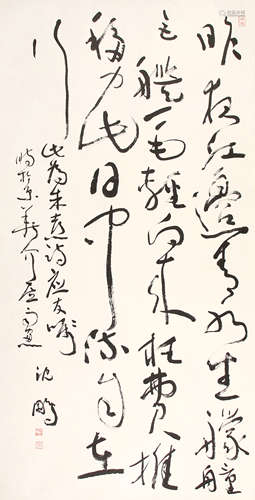 昨夜江邊春水生艨艟
巨艦一毛輕向来枉費推
移力此日中流自在
行
此為朱熹詩應友囑
於京華介居
沈鵬